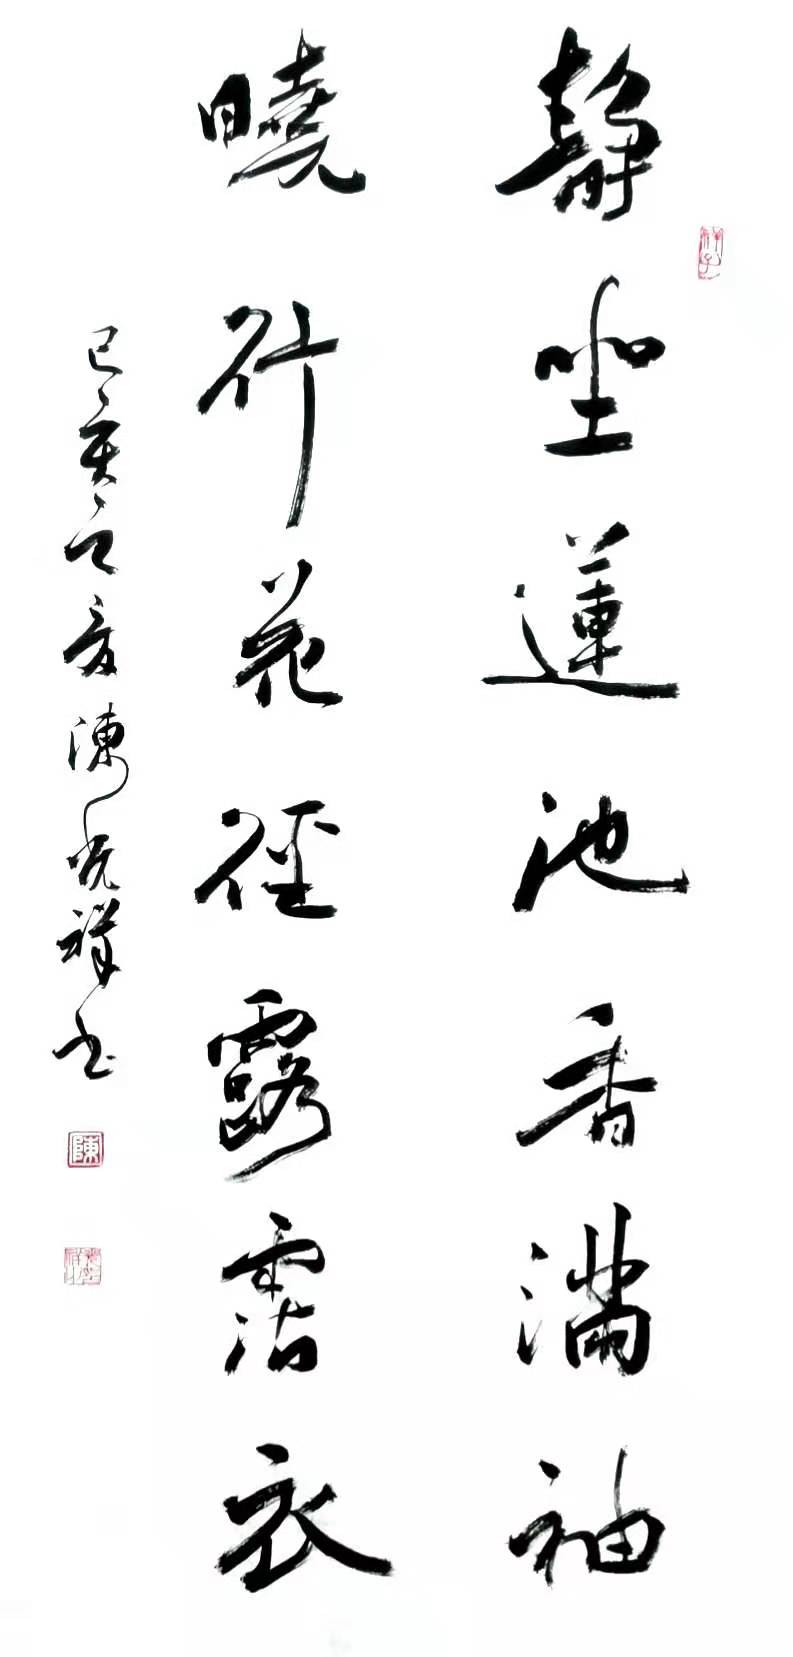 靜坐蓮池香滿袖
曉行花徑露霑衣
己亥之夏陳光祥书
陳